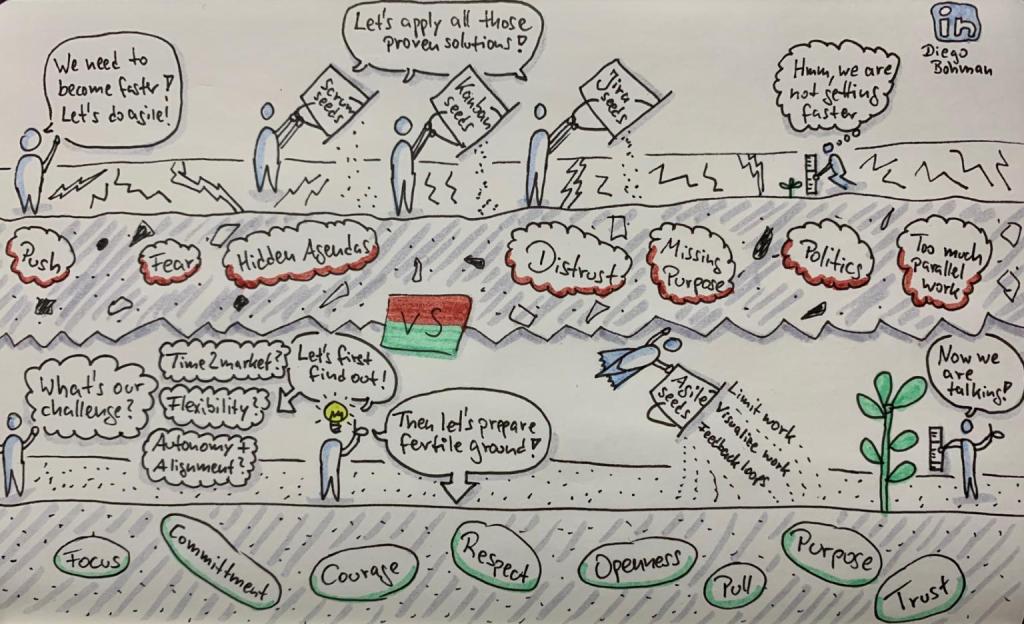 We need to
become faster!
Let's do agile!
Let's apply all those
proven solutions!
Scrum
seeds
Kanban
seeds
Jira
seeds
Hmm, we are
not getting
faster
in
Diego
Bohman
Push
Fear
Hidden Agendas
Distrust
Missing
Purpose
Politics
Too much
parallel
work
VS
What's our
challenge?
Time2market?
Flexibility?
Autonomy +
Alignment?
Let's first
find out!
Then let's prepare
fertile ground!
Agile
seeds
Limit work
Visualize work
Feedback loops
Now we
are
talking!
Focus
Committment
Courage
Respect
Openness
Pull
Purpose
Trust